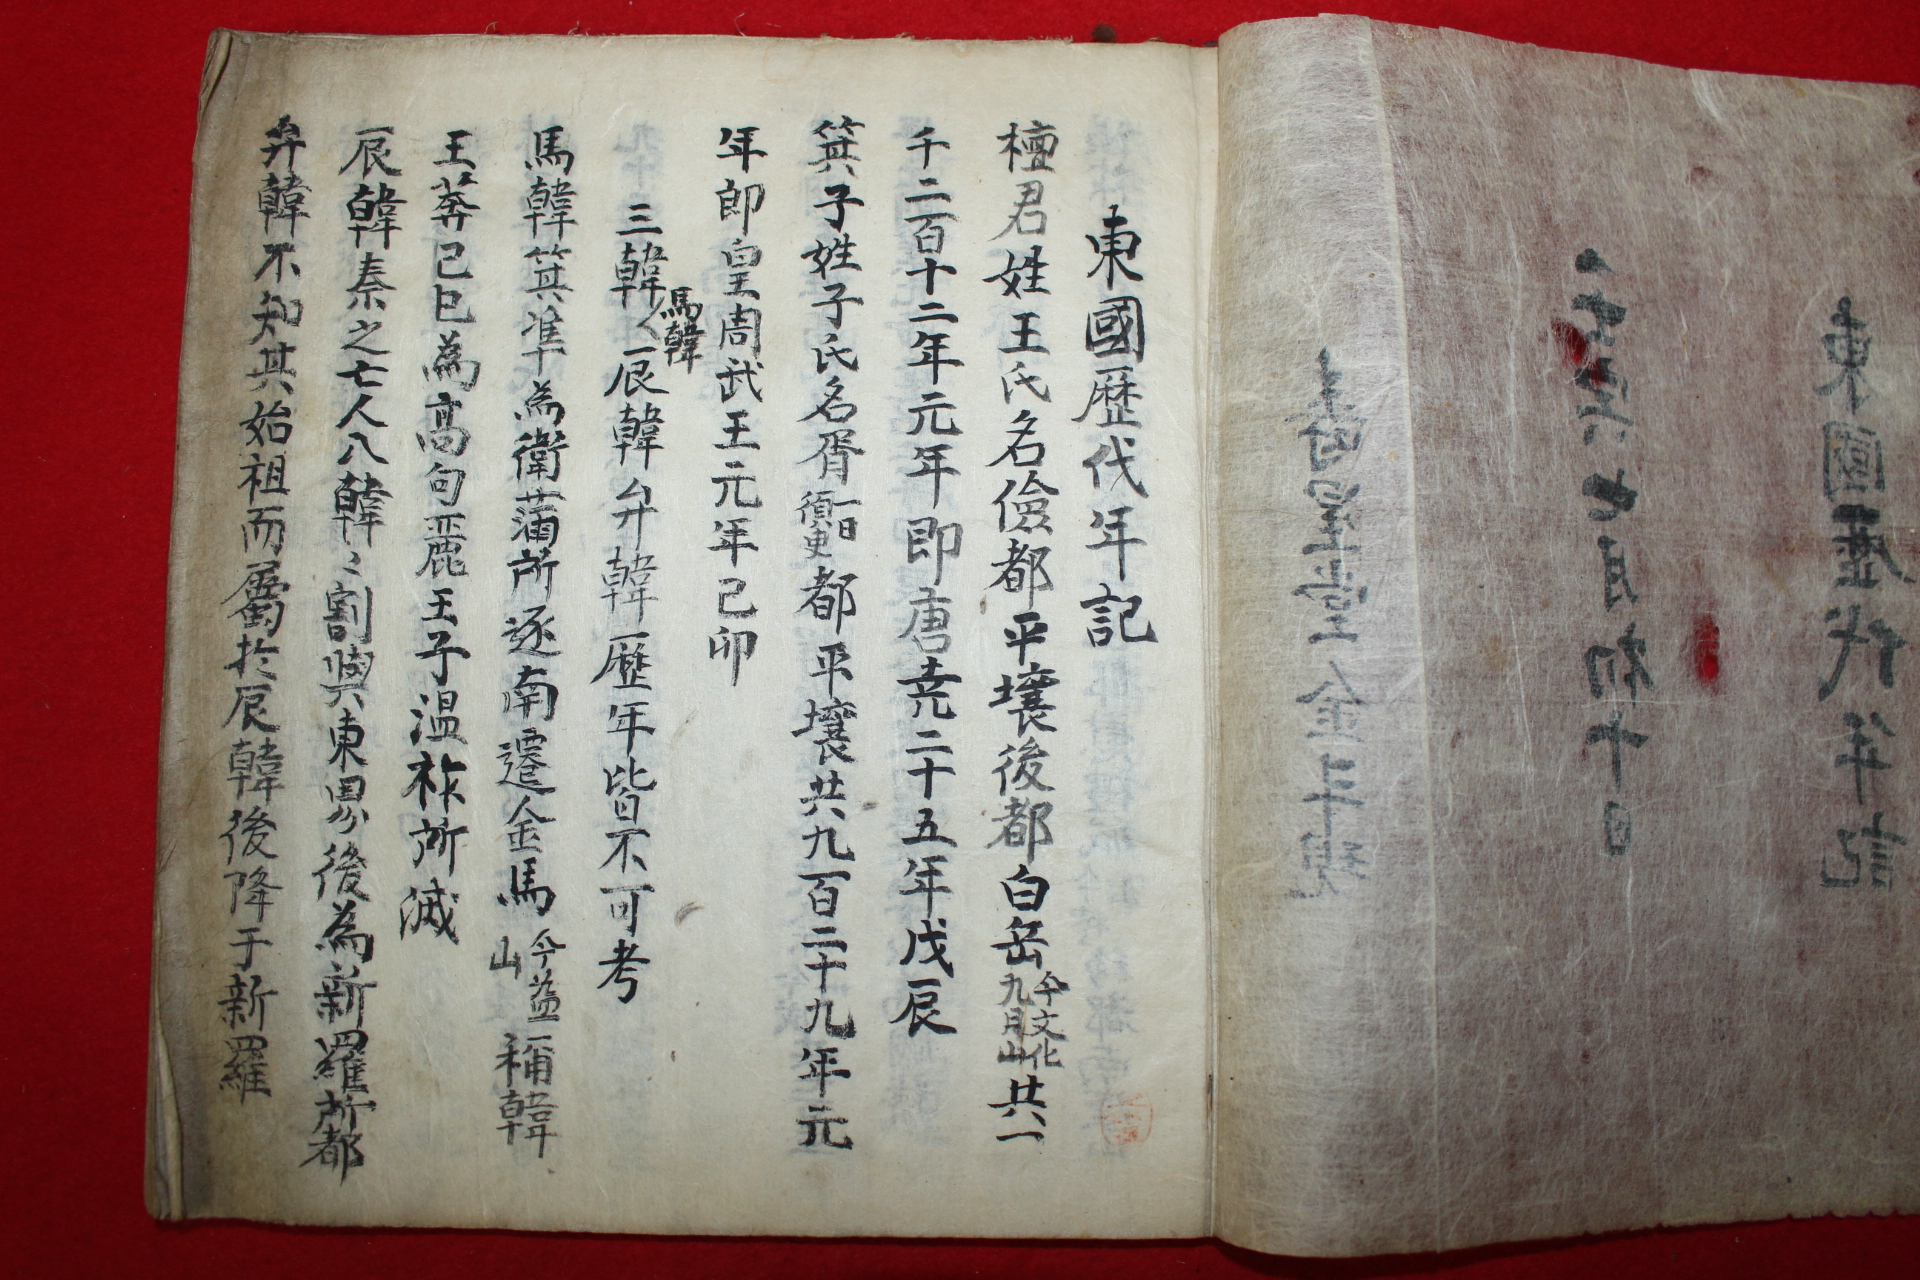 東國歷代年記
檀君姓王氏名儉都平壤後都白岳今文化九月山共一
千二百十二年元年即唐堯二十五年戊辰
箕子姓子氏名胥一曰須臾都平壤共九百二十九年元
年即皇周武王元年己卯
三韓馬韓辰韓弁韓歷年皆不可考
馬韓箕準為衛蒲所逐南遷金馬今益山稱韓
王莽己巳為高句麗王子温祚所滅
辰韓秦之亡人入韓〻割與東界後為新羅所都
弁韓不知其始祖而屬於辰韓後降于新羅
東國歷代年記
七月初十日
壽星堂金